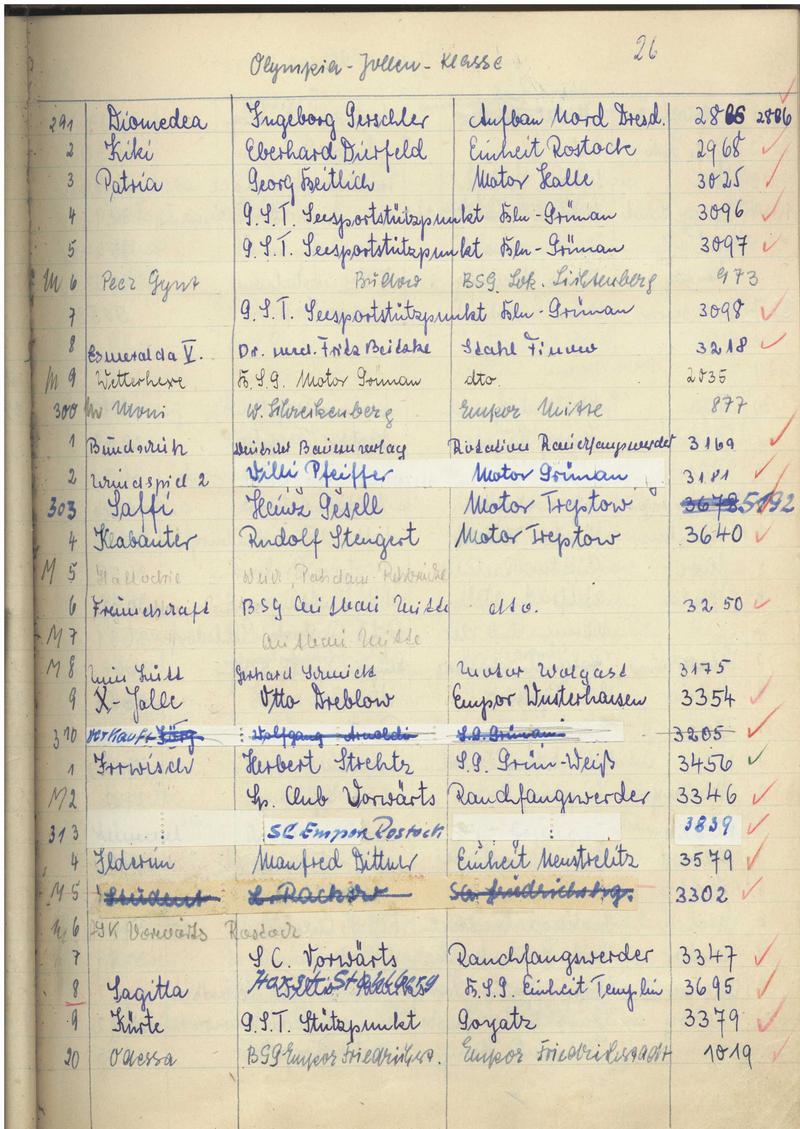 Olympia-Jollen-Klasse 26
291 Diomedea Ingeborg Gerschler Aufbau Nord Dresd. 2886
2 Kiki Eberhard Dierfeld Einheit Rostock 2968
3 Patria Georg Beitlich Motor Halle 3025
4 G.S.T. Seesportstützpunkt Bln-Grünau 3096
5 G.S.T. Seesportstützpunkt Bln-Grünau 3097
M 6 Peer Gynt BSG. Lok. Lichtenberg 973
7 G.S.T. Seesportstützpunkt Bln-Grünau 3098
8 Esmeralda V. Dr. med. Fritz Beitzke Stahl Finow 3218
M 9 Wetterhexe B.S.G. Motor Grünau dto. 2035
300 Moni W. Schreikenberg Empor Mitte 877
1 Bundschuh Deutscher Bauernverlag Rotation Rauchfangswerder 3169
2 Windspiel 2 Willi Pfeiffer Motor Grünau 3181
303 Saffi Heinz Gesell Motor Treptow 5192
4 Klabauter Rudolf Stengert Motor Treptow 3640
M 5 Potsdam
6 Freundschaft BSG Aufbau Mitte dto. 3250
M 7 Aufbau Mitte
M 8 Gerhard Schmidt Motor Wolgast 3175
9 X-Jolle Otto Dreblow Empor Wusterhausen 3354
310 verkauft Jörg Wolfgang Arnoldi S.G. Grünau 3205
1 Irrwisch Herbert Strehtz S.G. Grün-Weiß 3456
M 2 Sp. Club Vorwärts Rauchfangswerder 3346
313 SC Empor Rostock 3839
4 Ilderim Manfred Dittner Einheit Neustrelitz 3579
M 5 Student L. Rackow SG. Friedrichsbg. 3302
6 ASK Vorwärts Rostock
7 S.C. Vorwärts Rauchfangswerder 3347
8 Sagitta Horst B.S.G. Einheit Templin 3695
9 Kürte G.S.T. Stützpunkt Goyatz 3379
20 Odessa BSG Empor Friedrichst. Empor Friedrichstadt 1019